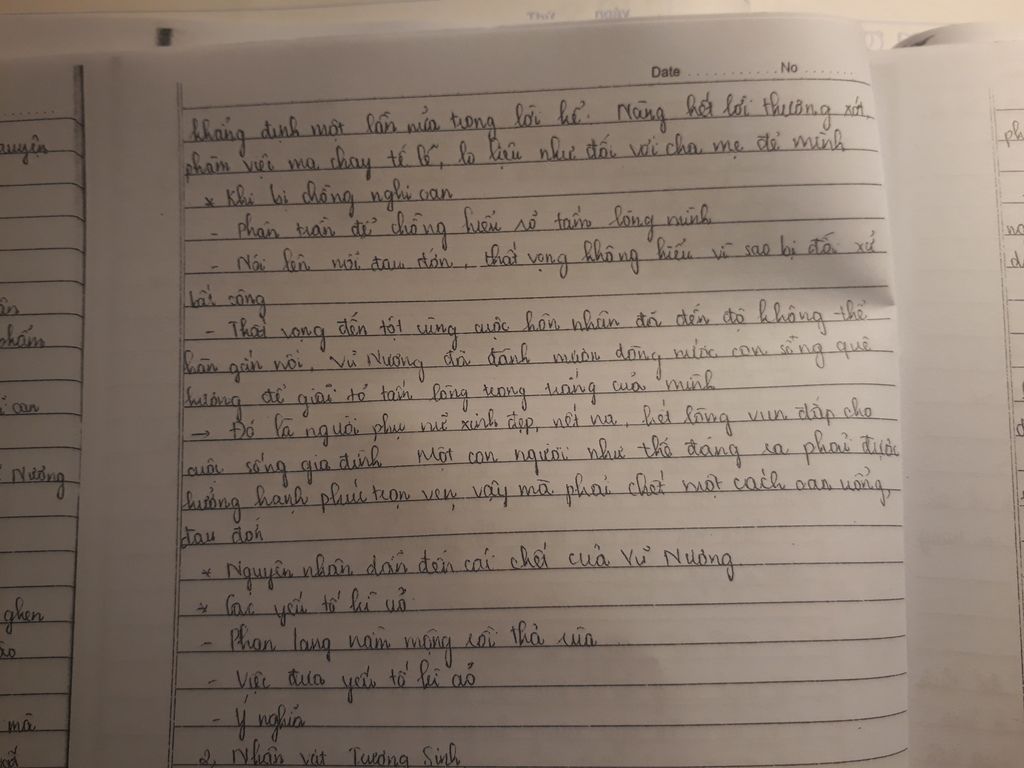 Thứ ngày
Date No
khẳng định một lần nữa trong lời kể: Nàng hết lời thương xót,
phàm việc ma chay tế lễ, lo liệu như đối với cha mẹ đẻ mình
* Khi bị chồng nghi oan
- Phân trần để chồng hiểu rõ tấm lòng mình
- Nói lên nỗi đau đớn, thất vọng không hiểu vì sao bị đối xử
bất công
- Thất vọng đến tột cùng cuộc hôn nhân đã đến độ không thể
hàn gắn nổi, Vũ Nương đã đành mượn dòng nước con sông quê
hương để giải tỏ tấm lòng trong trắng của mình
→ Đó là người phụ nữ xinh đẹp, nết na, hết lòng vun đắp cho
cuộc sống gia đình Một con người như thế đáng ra phải được
hưởng hạnh phúc trọn vẹn, vậy mà phải chết một cách oan uổng,
đau đớn
* Nguyên nhân dẫn đến cái chết của Vũ Nương
* Các yếu tố kì ảo
- Phan lang nằm mộng rồi thả rùa
- Việc đưa yếu tố kì ảo
- Ý nghĩa
2, Nhân vật Trương Sinh
oan
Nương
ghen
mà